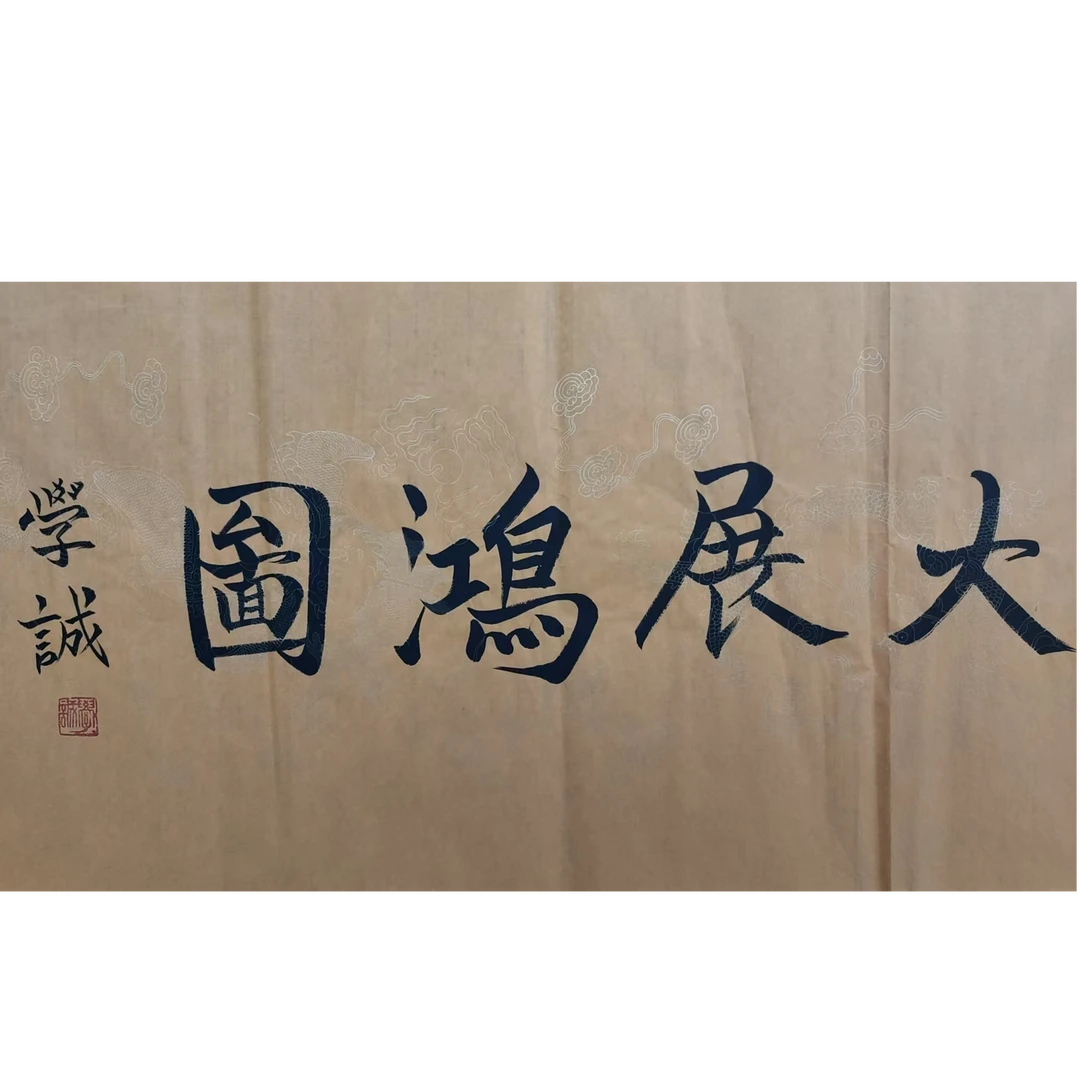 大展鴻圖
學誠